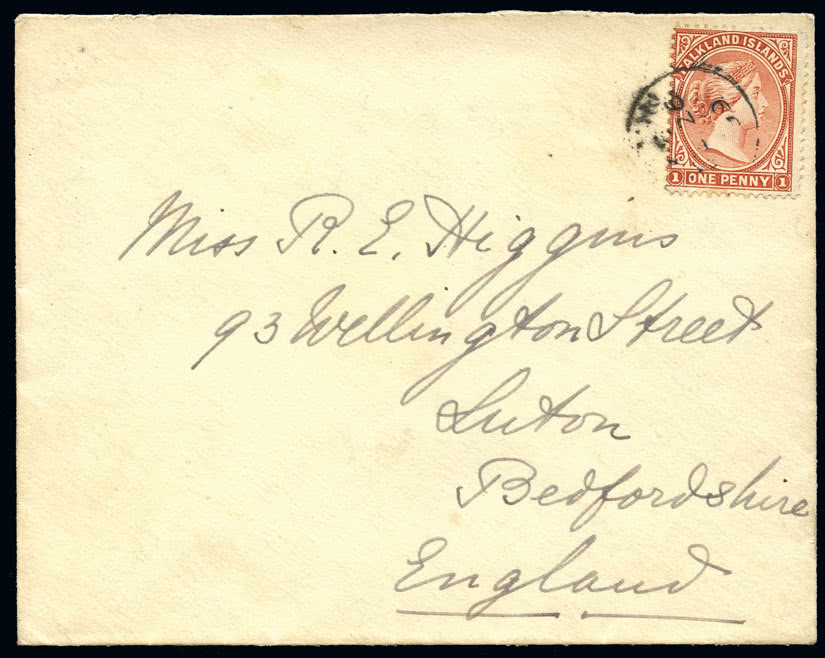 FALKLAND ISLANDS
1 ONE PENNY 1
Miss R. E. Higgins
93 Wellington Street
Luton
Bedfordshire
England